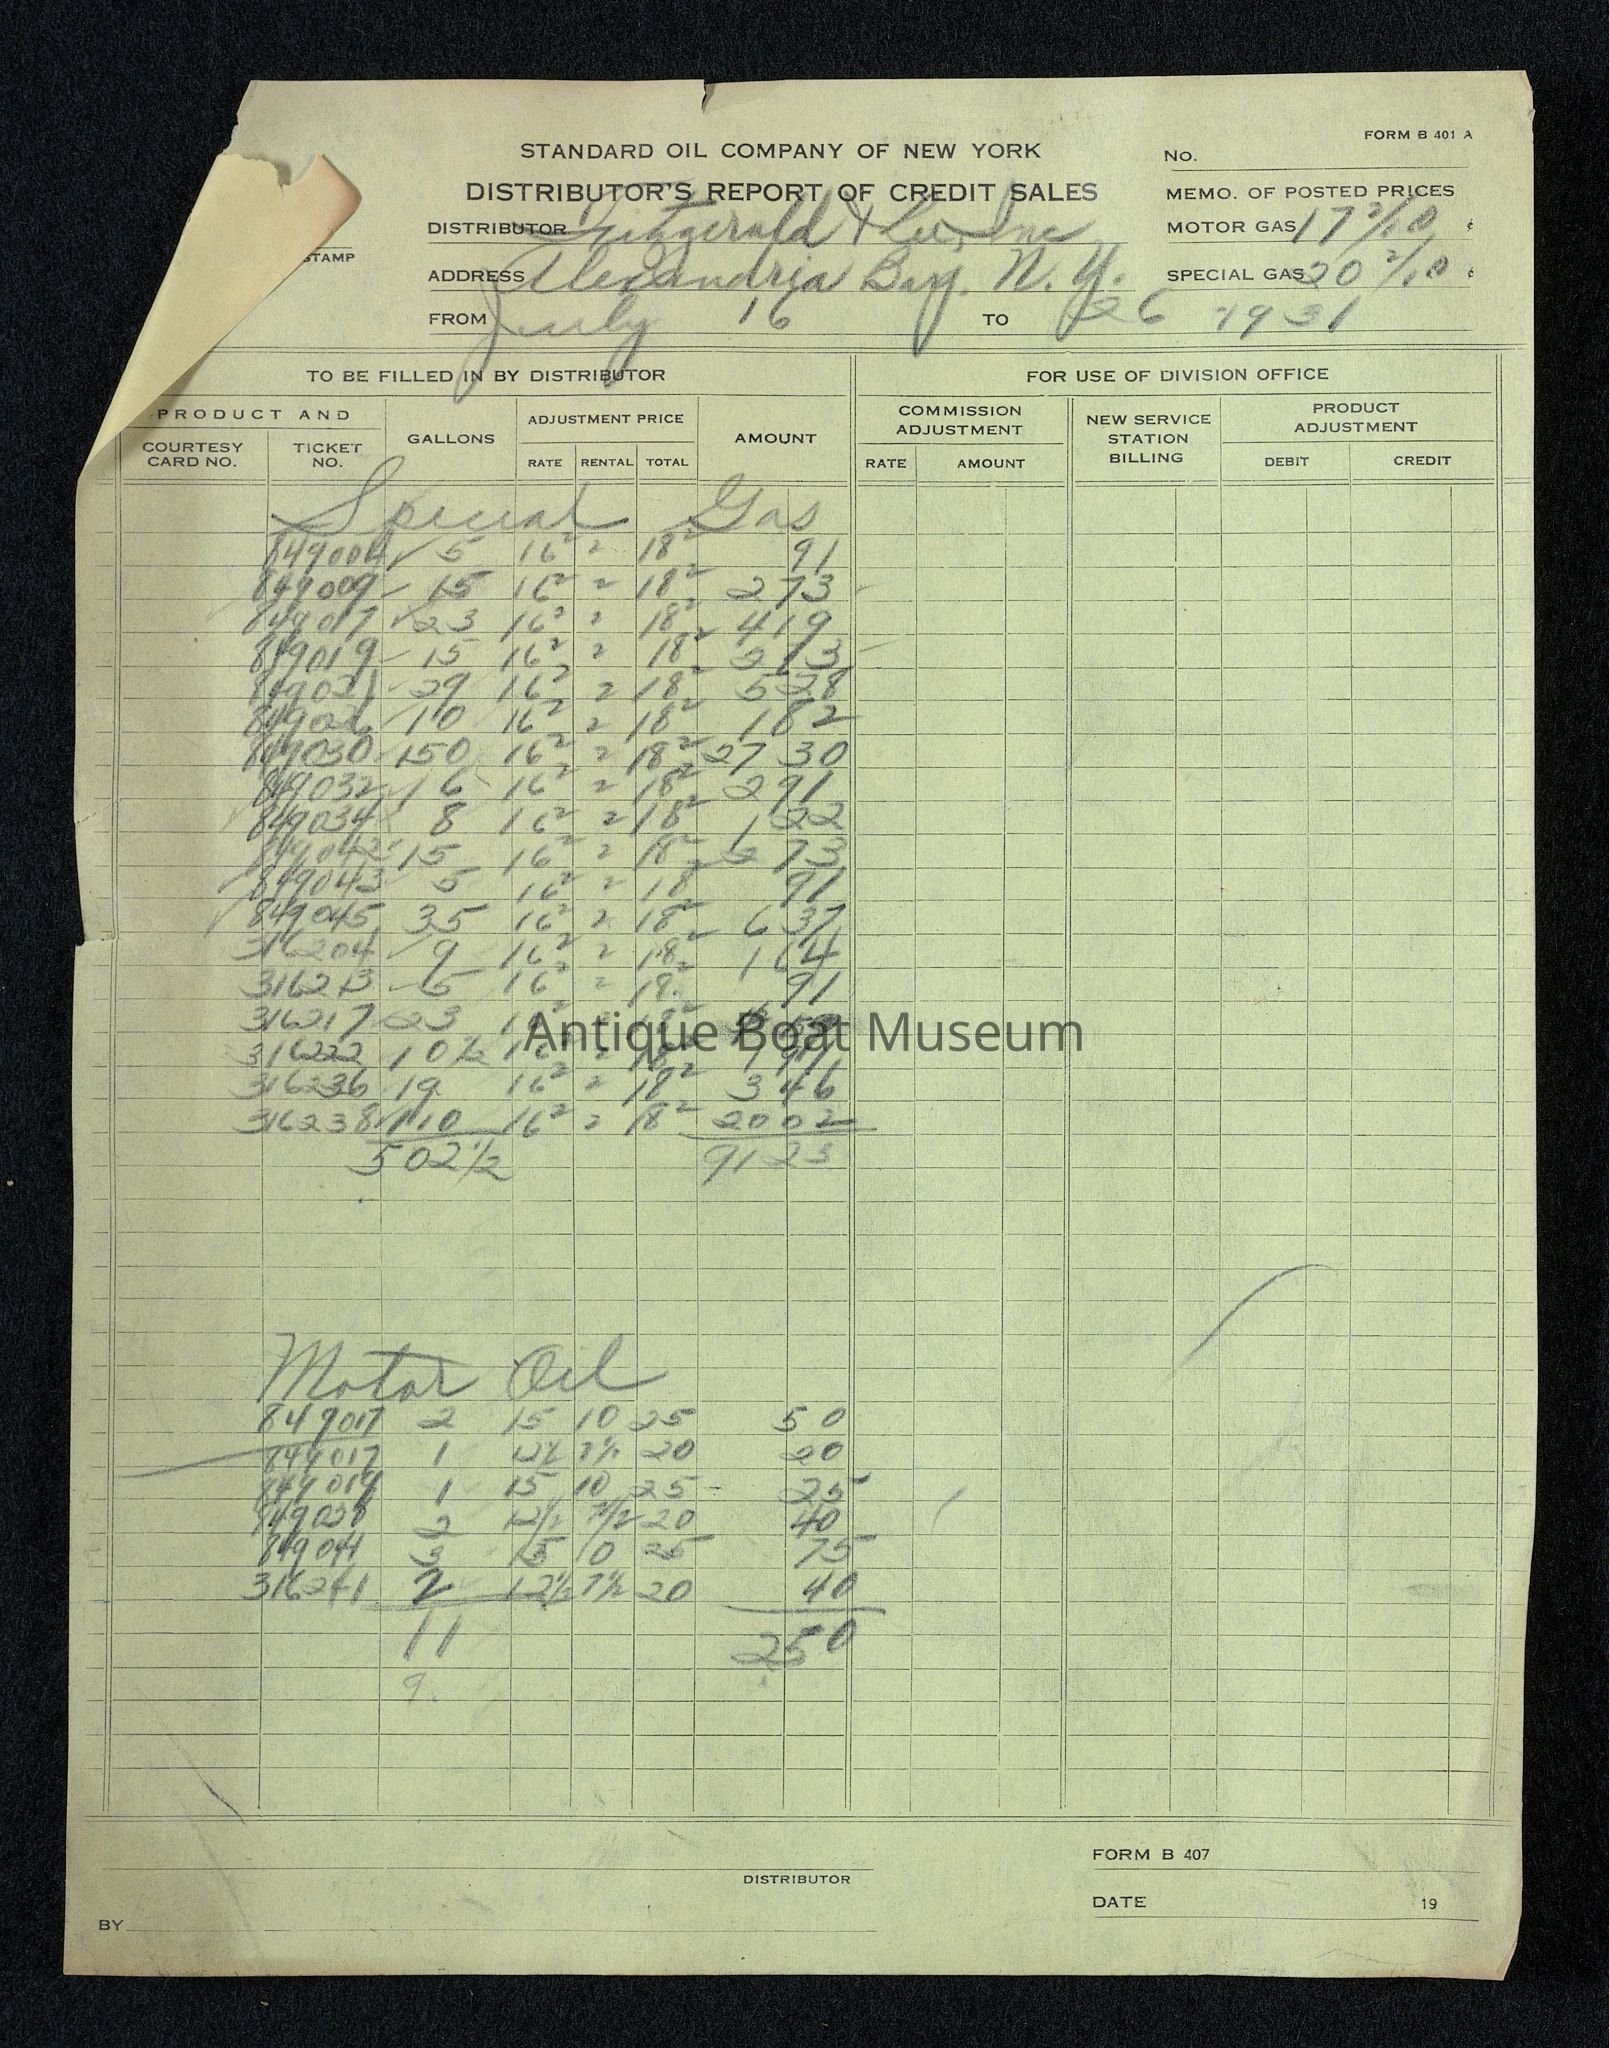 FORM B 401 A
STANDARD OIL COMPANY OF NEW YORK
NO.
DISTRIBUTOR'S REPORT OF CREDIT SALES
MEMO. OF POSTED PRICES
DISTRIBUTOR Fitzgerald & Lee, Inc
MOTOR GAS 17 2/10 ¢
STAMP
ADDRESS Alexandria Bay. N. Y.
SPECIAL GAS 20 2/10 ¢
FROM July 16 TO 26 1931
TO BE FILLED IN BY DISTRIBUTOR
FOR USE OF DIVISION OFFICE
PRODUCT AND
COURTESY CARD NO.
TICKET NO.
GALLONS
ADJUSTMENT PRICE
RATE RENTAL TOTAL
AMOUNT
COMMISSION ADJUSTMENT
RATE AMOUNT
NEW SERVICE STATION BILLING
PRODUCT ADJUSTMENT
DEBIT CREDIT
Special Gas
849004 5 16² 2 18² 91
849009 15 16² 2 18² 2 73
849017 23 16² 2 18² 4 19
849019 15 16² 2 18² 2 73
849021 29 16² 2 18² 5 28
849026 10 16² 2 18² 1 82
849030 150 16² 2 18² 27 30
849032 16 16² 2 18² 2 91
849034 8 16² 2 18² 1 22
849042 15 16² 2 18² 2 73
849043 5 16² 2 18² 91
849045 35 16² 2 18² 6 37
316204 9 16² 2 18² 1 64
316213 5 16² 2 18² 91
316217 23 16² 2 18²
316222 10½ 16² 2 18² 1 91
316236 19 16² 2 18² 3 46
316238 110 16² 2 18² 20 02
502½ 91 23
Antique Boat Museum
Motor Oil
849017 2 15 10 25 50
849017 1 12½ 7½ 20 20
849019 1 15 10 25 25
849028 2 12½ 7½ 20 40
849044 3 15 10 25 75
316241 2 12½ 7½ 20 40
11 2 50
9
FORM B 407
DISTRIBUTOR
DATE 19
BY